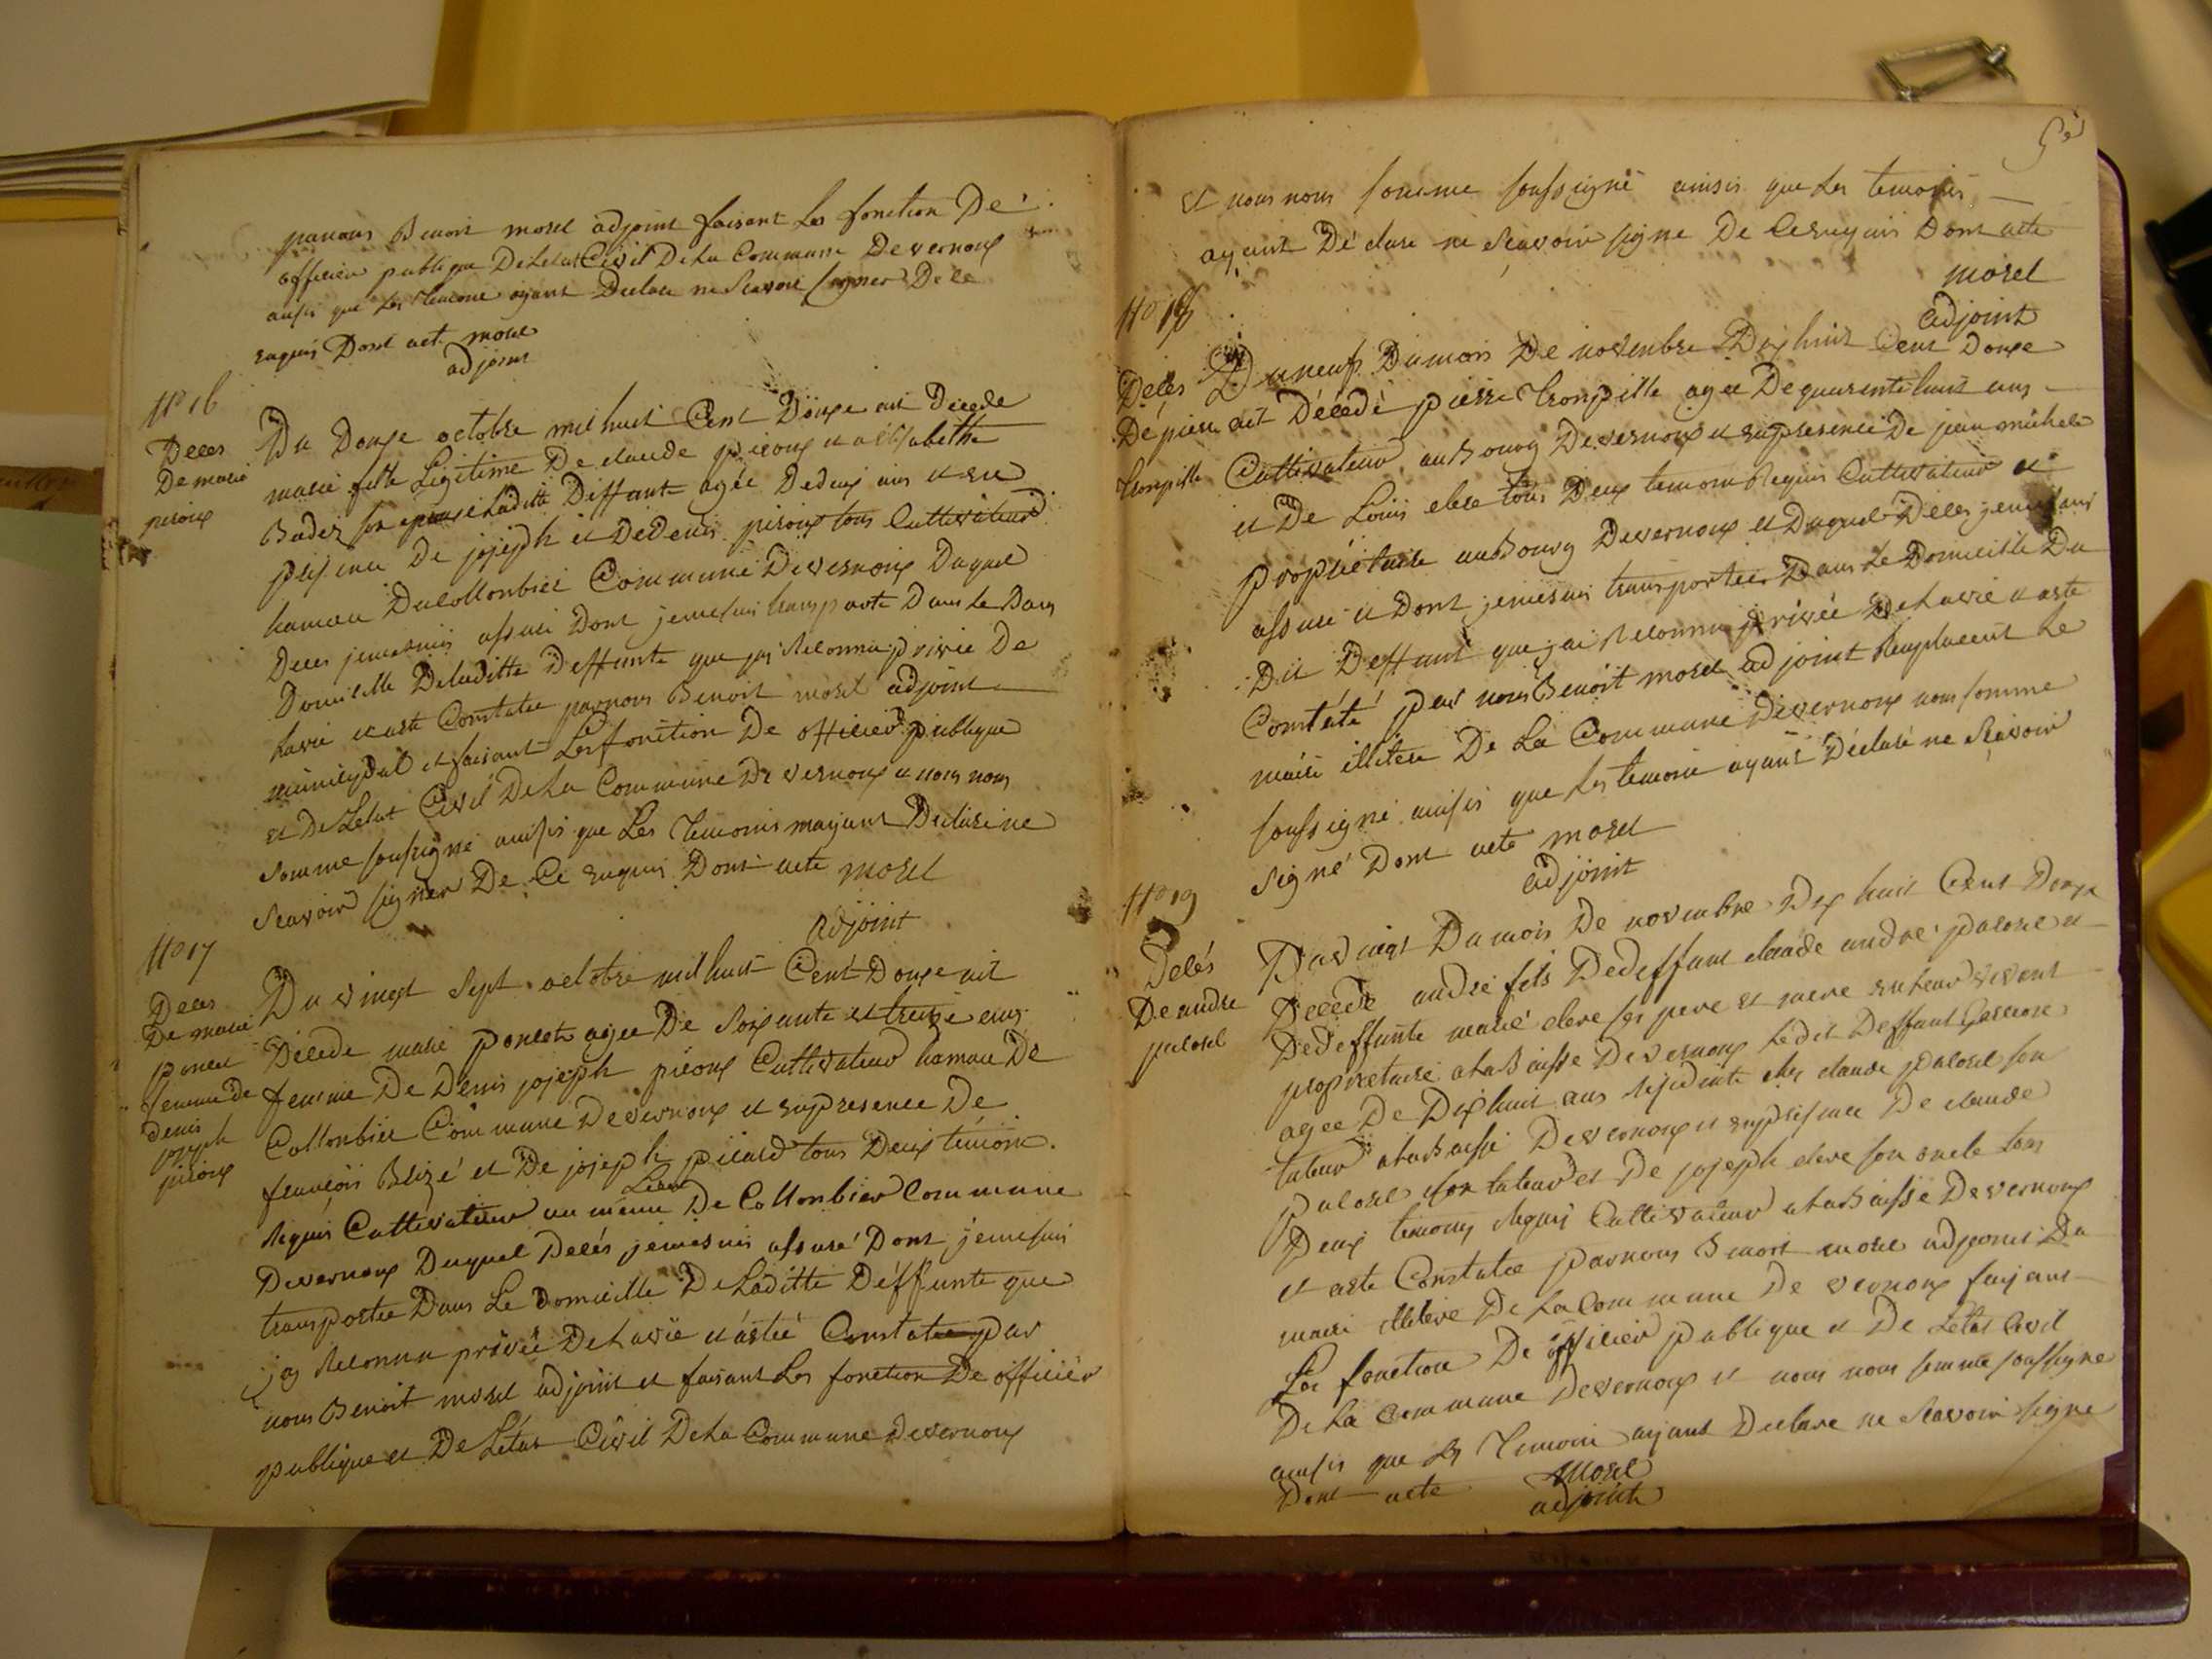 par nous Benoit morel adjoint faisant Les fonction De
officier publique De Letat Civil De La Commune De vernoux
ausis que Les temoins ayant Declare ne Scavoir signer De ce
requis Dont act morel
adjoint
No 16
Deces
De marie
piroux
Du Douze octobre mil huit Cent Douze ait Decede
marie fille Legitime De claude piroux et a Elisabethe
Badez son epouse Laditte Deffunte agée De deux ans et en
presence De joseph et De Denis piroux tous Cultivateurs
hameau Du Collonbier Commune De vernoux Duquel
Deces jemesuis assuré Dont jemesuis transporte Dans Le
Domicille De laditte Deffunte que jai Reconnu privée De
La vie et a été Constatée par nous Benoit morel adjoint
municipal et faisant Les fonction De officier publique
et De Letat Civil De La Commune De vernoux et nous nous
somme sousigné ausis que Les temoins mayant Declaré ne
Scavoir signer De Ce requis Dont acte morel
adjoint
No 17
Deces
De marie
poncet
femme de
denis
joseph
piroux
Du vingt Sept octobre mil huit Cent Douze ait
Décede marie poncet agee De Soixante et treize ans
femme De Denis joseph piroux Cultivateur hameau De
Collonbier Commune De vernoux et en presence De
francois Bezé et De joseph picard tous Deux témoin
Requis Cultivateur au même Lieu De Collonbier Commune
De vernoux Duquel Decés jemesuis assuré Dont jemesuis
transportee Dans Le Domicille De Laditte Déffunte que
jai Reconnu privée De La vie et a été Constatee par
nous Benoit morel adjoint et faisant Les fonction De officier
publique et De Létat Civil De La Commune De vernoux
5e
et nous nous somme soussigné ainsis que Les temoins
ayant Déclare ne Scavoir signe De Ce requis Dont acte
morel
adjoint
No 18
Décés
De piere
trompille
Du neuf Du mois De novenbre Dix huit Cent Douze
ait Décédé pierre trompille agee De quarente huit ans
Cultivateur au Bourg De vernoux et en presence De jean michel
et De Louis clere tous Deux temoin Requis Cultivateur et
propriétaire au Bourg De vernoux et Duquel Déces jemesuis
assuré et Dont jemesuis transportée Dans Le Domicille Du
Dit Deffunt que jai Reconnu privée De La vie et a été
Contaté par nous Benoit morel adjoint Remplacent Le
maire De La Commune De vernoux nous somme
soussigné ausis que Les temoin ayant Déclaré ne Scavoir
Signé Dont acte morel
adjoint
No 19
Decés
De andre
palorel
Du vingt Du mois De novenbre Dix huit Cent Douze
Décédé andre fils De deffunt claude andre palorel et
De deffunte marie clere ses pere et mere en leur vivant
propriétaire a la Baisse De vernoux Ledit Deffunt
agee De Dix huit ans Residente chez claude palorel son
tuteur a la Baisse De vernoux et en presence De claude
palorel son tuteur et De joseph clere son oncle tous
Deux temoins Requis Cultivateur a la Baisse De vernoux
et a été Constatee par nous Benoit morel adjoint Du
maire De La Commune De vernoux faisant
Les fonction De officier publique et De Letat Civil
De La Commune De vernoux et nous nous somme soussigne
ausis que Les temoin ayant Declare ne Scavoir signe
Dont acte morel
adjoint